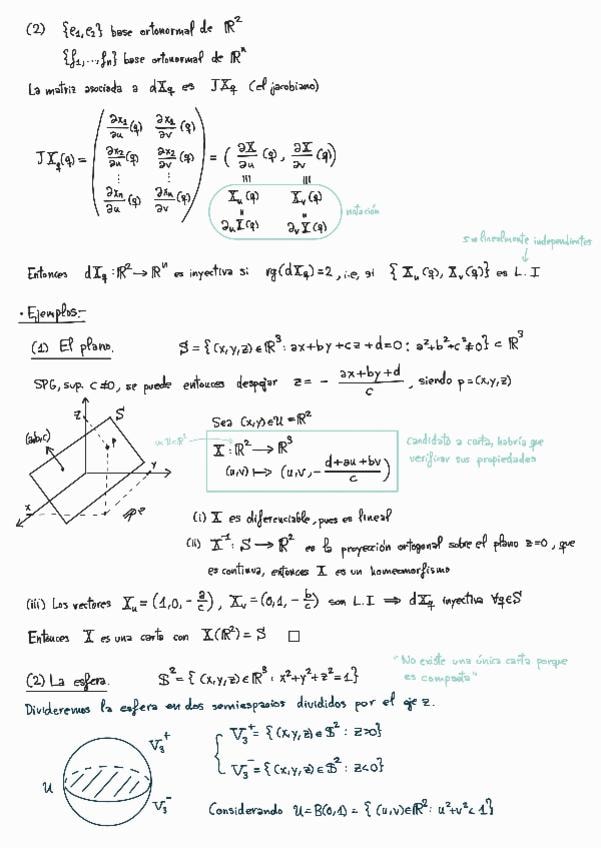 (2) {e₁,e₂} base ortonormal de ℝ²
{f₁,...,fₙ} base ortonormal de ℝⁿ
La matriz asociada a dX_q es JX_q (el jacobiano)
JX_q(q) = ( ∂x₁/∂u (q) ∂x₁/∂v (q) ; ∂x₂/∂u (q) ∂x₂/∂v (q) ; ⋮ ⋮ ; ∂xₙ/∂u (q) ∂xₙ/∂v (q) ) = ( ∂X/∂u (q), ∂X/∂v (q) )
X_u(q) X_v(q)
∂_uX(q) ∂_vX(q)
notación
linealmente independientes
Entonces dX_q : ℝ² → ℝⁿ es inyectiva si rg(dX_q)=2, i.e, si { X_u(q), X_v(q)} es L.I
· Ejemplos:-
(1) El plano. S = {(x,y,z)∈ℝ³ : ax+by+cz+d=0 ; a²+b²+c²≠0} ⊂ ℝ³
SPG, sup. c≠0, se puede entonces despejar z = - (ax+by+d)/c, siendo p=(x,y,z)
z S
(a,b,c) p
y
x
Sea (x,y)∈U=ℝ²
X : ℝ² → ℝ³
(u,v) ↦ (u,v,- (d+au+bv)/c)
candidato a carta, habría que
verificar sus propiedades
(i) X es diferenciable, pues es lineal
(ii) X⁻¹ : S → ℝ² es la proyección ortogonal sobre el plano z=0, que
es continua, entonces X es un homeomorfismo
(iii) Los vectores X_u = (1,0,- a/c), X_v = (0,1,- b/c) son L.I ⇒ dX_q inyectiva ∀q∈S
Entonces X es una carta con X(ℝ²) = S □
"No existe una única carta porque
es compacta"
(2) La esfera. 𝕊² = {(x,y,z)∈ℝ³ : x²+y²+z²=1}
Divideremos la esfera en dos semiespacios divididos por el eje z.
V₃⁺
U
V₃⁻
V₃⁺ = {(x,y,z)∈𝕊² : z>0}
V₃⁻ = {(x,y,z)∈𝕊² : z<0}
Considerando U=B(0,1) = {(u,v)∈ℝ² : u²+v²<1}